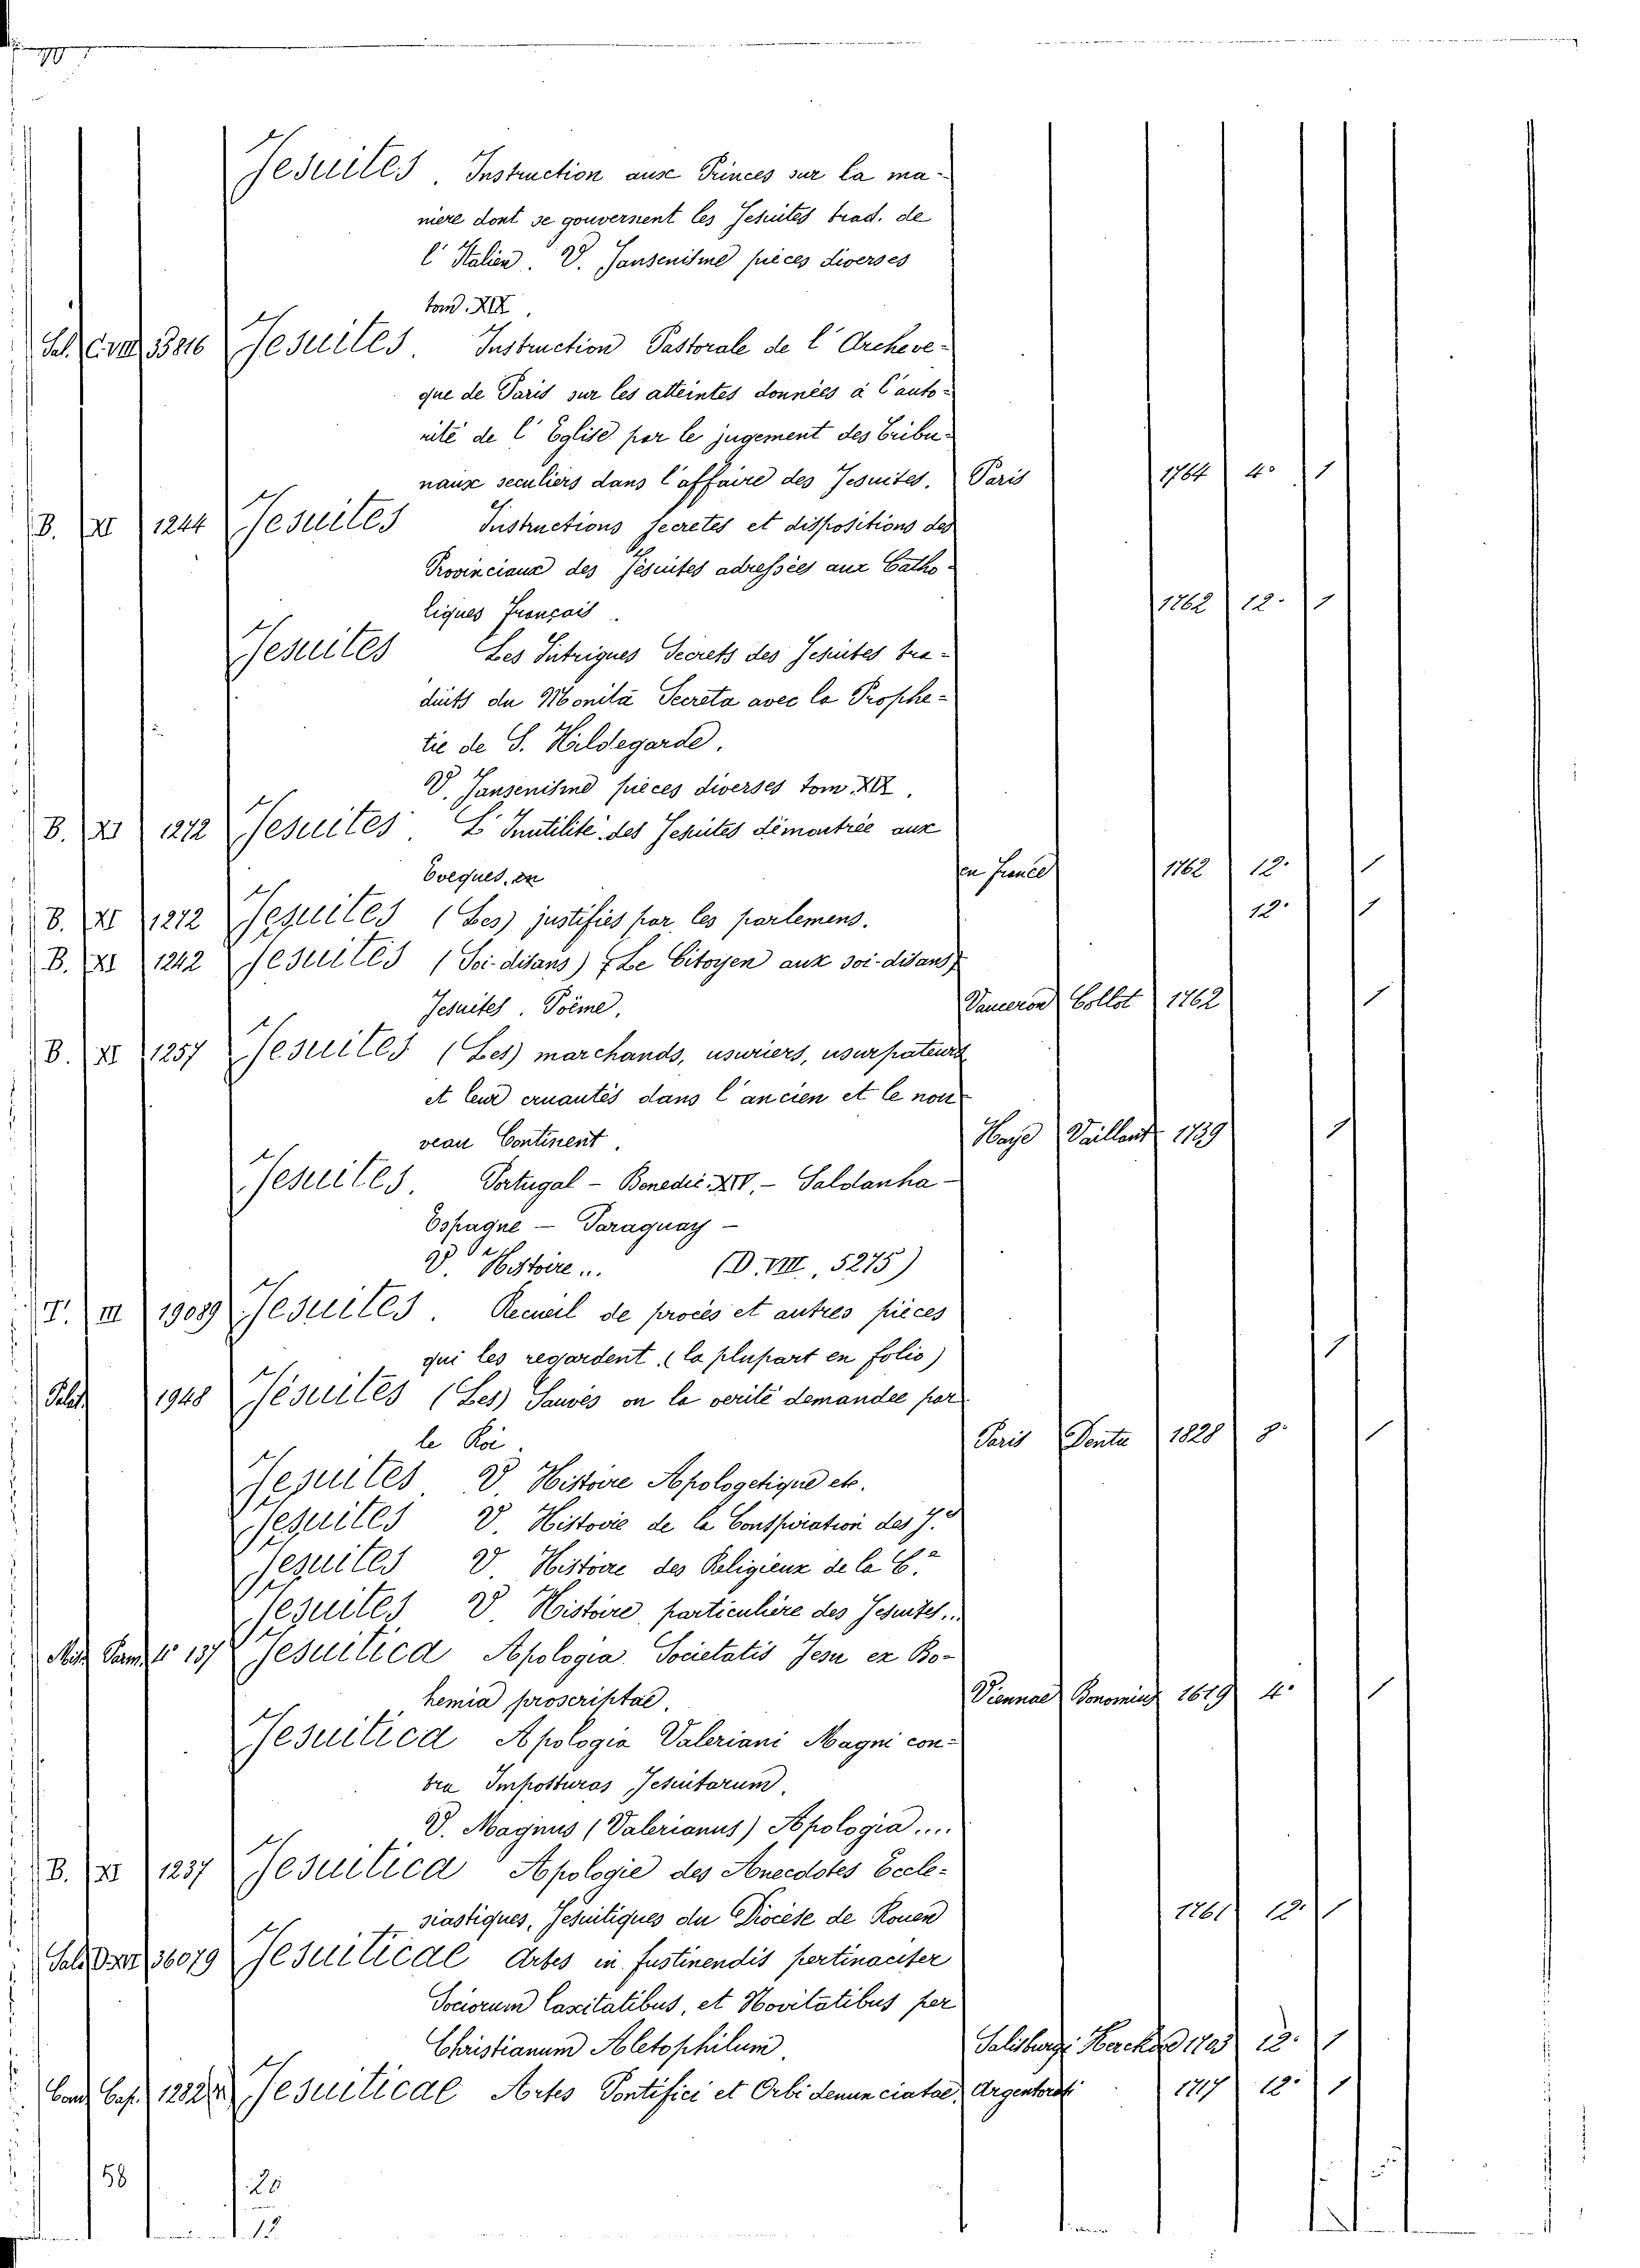 Jesuites. Instruction aux Princes sur la ma-
niere dont se gouvernent les Jesuites trad. de
l'Italien. V. Jansenisme pièces diverses
tom. XIX.
Sal. C.VIII 33816 Jesuites. Instruction Pastorale de l'Archeve-
que de Paris sur les atteintes données à l'auto-
rité de l'Eglise par le jugement des Tribu-
naux seculiers dans l'affaire des Jesuites. Paris 1764 4° 1
B. XI 1244 Jesuites Instructions secretes et dispositions des
Provinciaux des Jésuites adressées aux Catho-
liques Français. 1762 12° 1
Jesuites Les Intrigues Secrets des Jesuites tra-
duits du Monita Secreta avec la Prophe-
tie de S. Hildegarde.
V. Jansenisme pièces diverses tom XIX.
B. XI 1272 Jesuites. L'Inutilité des Jesuites démontrée aux
Eveques. en en France 1762 12° 1
B. XI 1272 Jesuites (Les) justifiés par les parlemens. 12° 1
B. XI 1242 Jesuites (Soi-disans) Le Citoyen aux soi-disans
Jesuites. Poème. Collot 1762 1
B. XI 1257 Jesuites (Les) marchands, usuriers, usurpateurs
et leur cruautés dans l'ancien et le nou-
veau Continent. Haye Vaillant 1739 1
Jesuites. Portugal - Benedic. XIV. - Saldanha -
Espagne - Paraguay -
V. Histoire... (D. VIII, 5275)
T. III 19089 Jesuites. Recueil de procès et autres pièces
qui les regardent. (la plupart en folio) 1
Palat. 1948 Jésuites (Les) Sauvés ou la verité demandée par
le Roi. Paris Dentu 1828 8° 1
Jesuites. V. Histoire Apologetique etc.
Jesuites V. Histovie de la Conspiration des J.
Jesuites V. Histoire des Religieux de la C.
Jesuites V. Histoire particulière des Jesuites...
Misc. Parm. 4° 137 Jesuitica Apologia Societatis Jesu ex Bo-
hemia proscriptae. Viennae Bonominus 1619 4° 1
Jesuitica Apologia Valeriani Magni con-
tra Imposturas Jesuitarum.
V. Magnus (Valerianus) Apologia....
B. XI 1237 Jesuitica Apologie des Anecdotes Eccle-
siastiques, Jesuitiques du Diocese de Rouen 1761 12° 1
Sal. 36079 Jesuiticae Artes in sustinendis pertinaciter
Sociorum Laxitatibus, et Novitatibus per
Christianum Aletophilum. Salisburgi 1703 12° 1
Cand. Cap. Jesuiticae Artes Pontifici et Orbi denunciatae. Argentorati 1717 12° 1
58
20
12